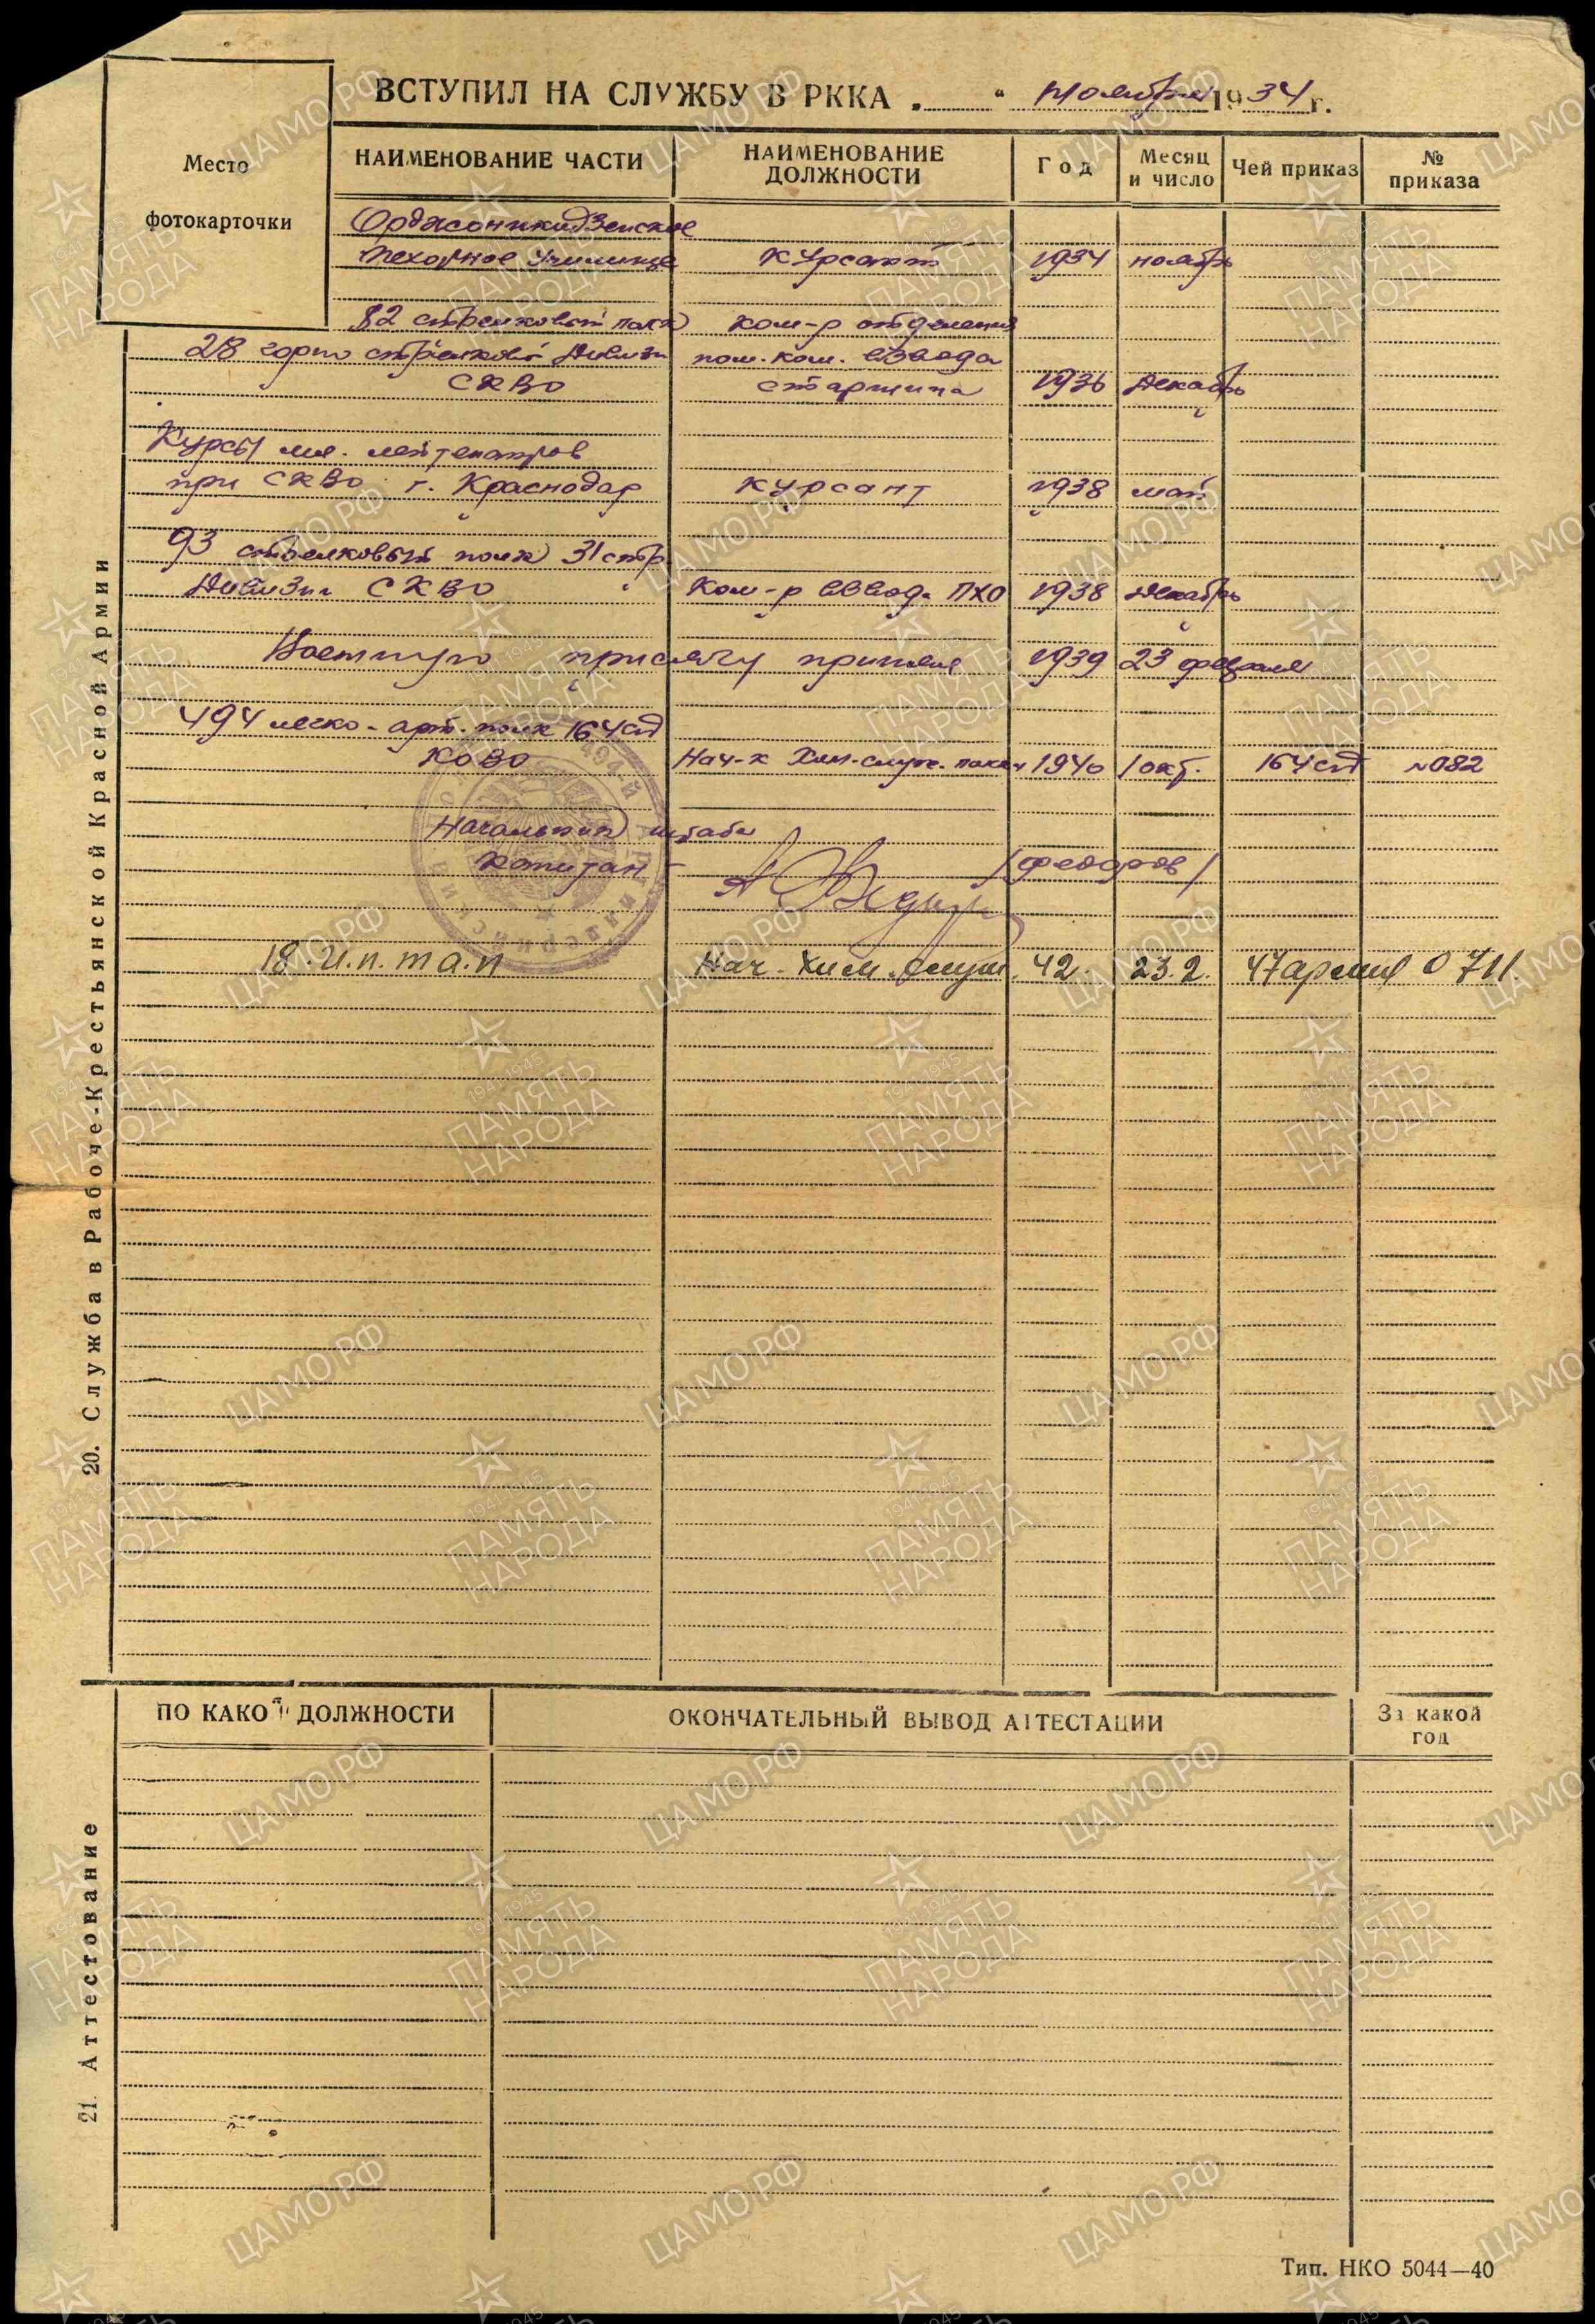 Место
фотокарточки
ВСТУПИЛ НА СЛУЖБУ В РККА „ “ ноября 1934 г.
НАИМЕНОВАНИЕ ЧАСТИ НАИМЕНОВАНИЕ ДОЛЖНОСТИ Год Месяц и число Чей приказ № приказа
Орджоникидзенское
пехотное училище курсант 1934 ноябрь
82 стрелковый полк ком-р отделения
28 горно стрелковой дивизи пом. ком. взвода
СКВО старшина 1936 декабрь
Курсы мл. лейтенантов
при СКВО г. Краснодар курсант 1938 май
93 стрелковый полк 31 стр.
дивизии СКВО Ком-р взвода ПХО 1938 декабрь
Военную присягу принял 1939 23 февраля
494 легко-арт. полк 164 сд
КОВО Нач-к Хим-служ. полка 1940 1 окт. 164 сд №082
Начальник штаба
капитан /Феодоров/
18. и.п.т.а.п Нач. хим. служ. 42. 23.2. 47 армия 0711.
20. Служба в Рабоче-Крестьянской Красной Армии
ПО КАКОЙ ДОЛЖНОСТИ ОКОНЧАТЕЛЬНЫЙ ВЫВОД АТТЕСТАЦИИ За какой год
21. Аттестование
Тип. НКО 5044—40
ЦАМО.РФ
1941-1945
ПАМЯТЬ
НАРОДА